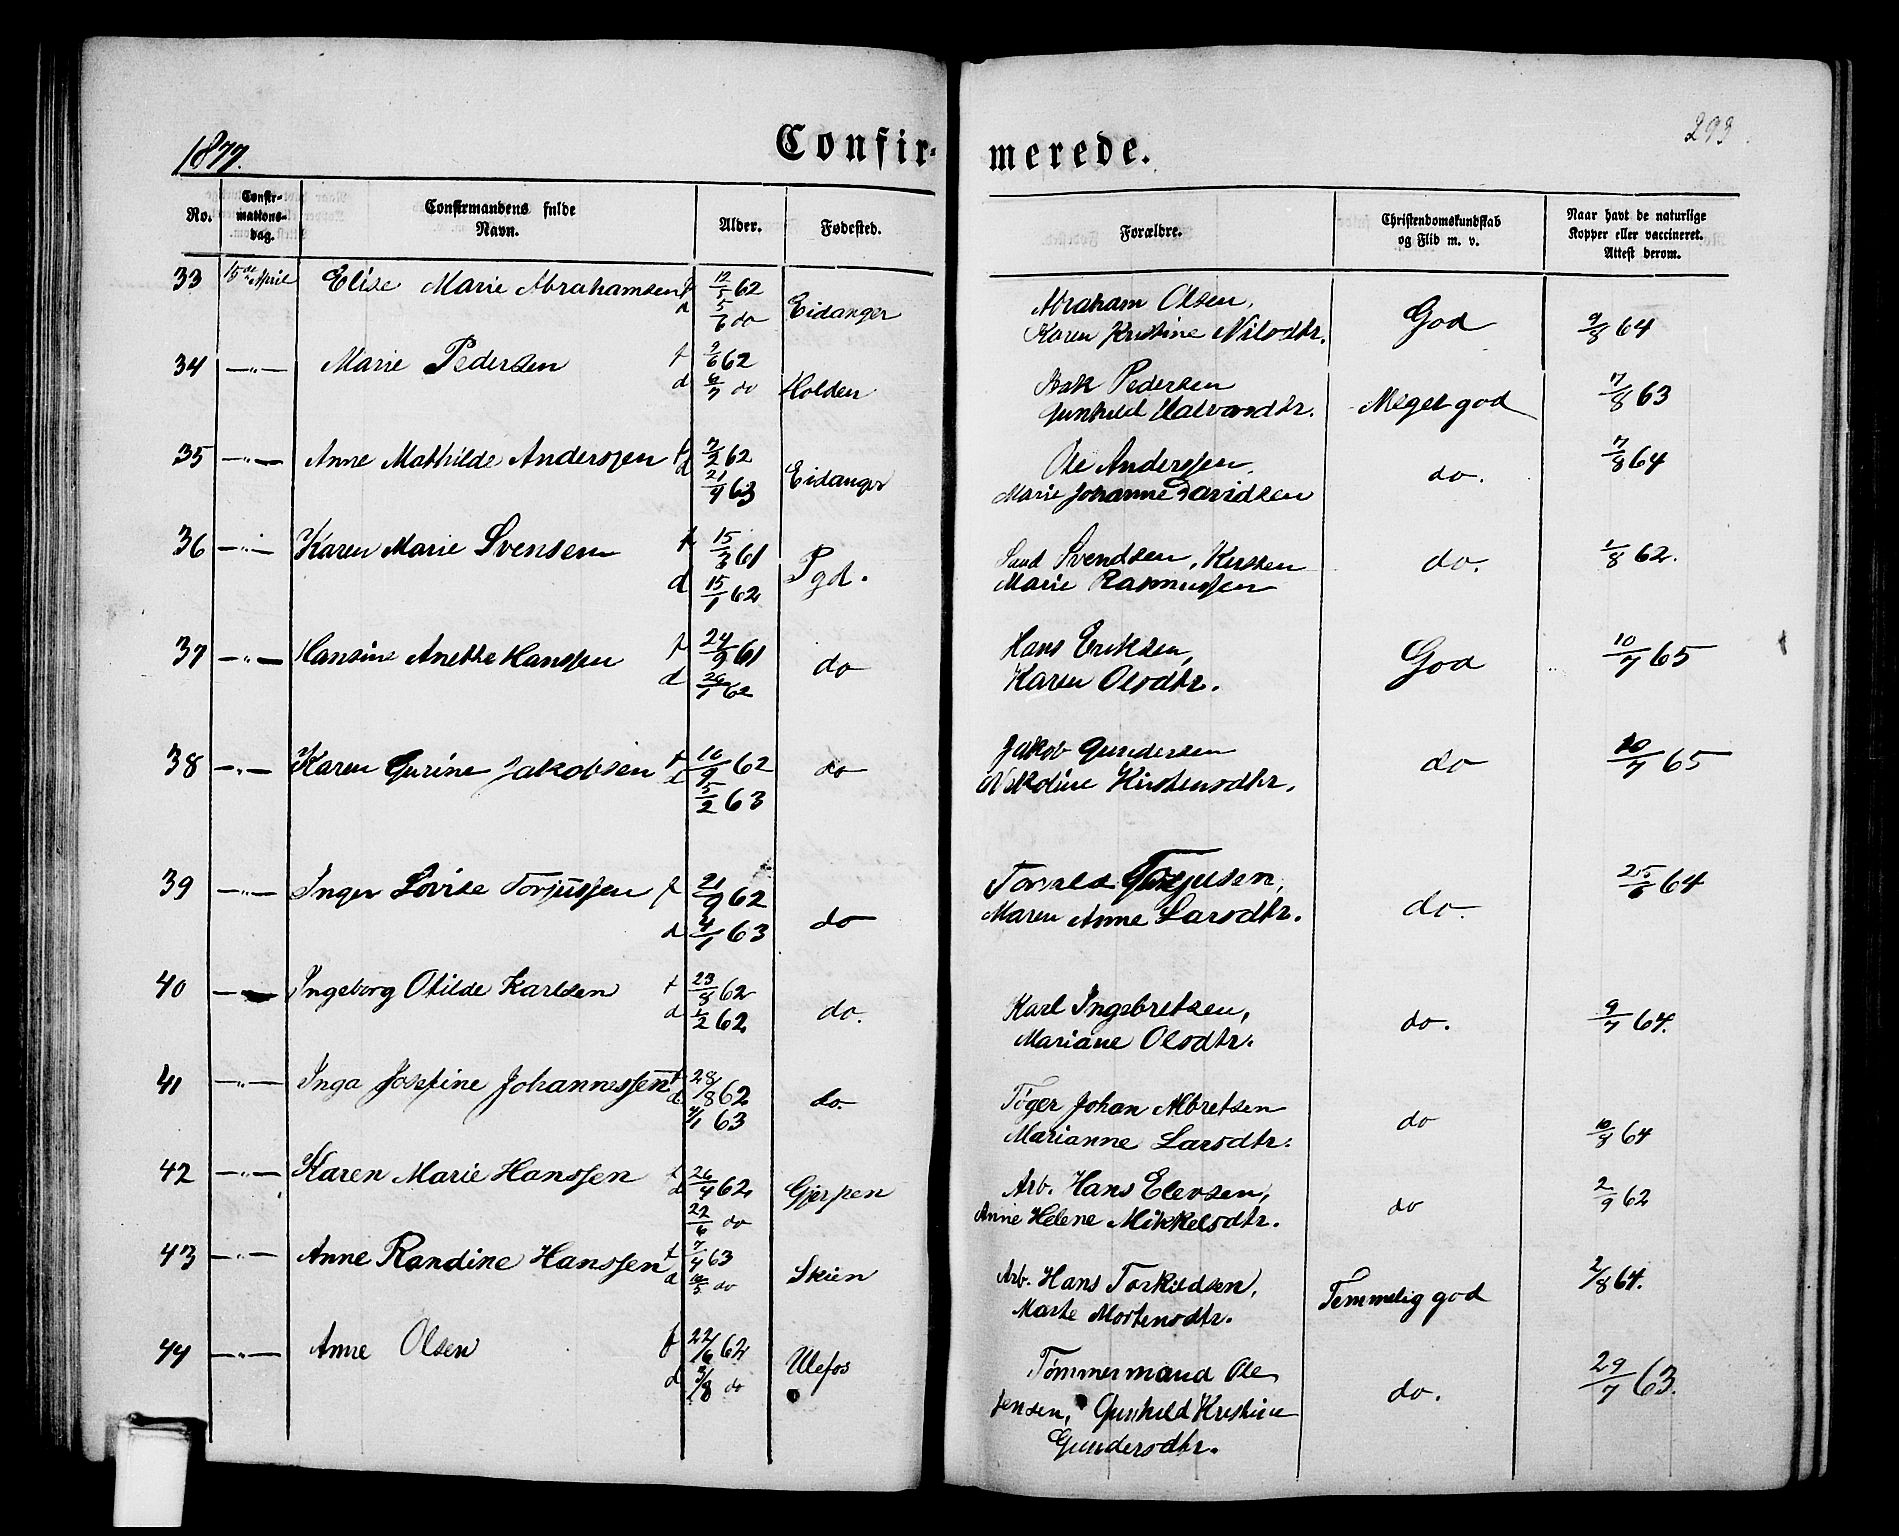 1877.
Confir-
merede.
293
No.
Confir-
mations-
dag.
Confirmandens fulde
Navn.
Alder.
Fødested.
Forældre.
Christendomskundskab
og Flid m. v.
Naar havt de naturlige
Kopper eller vaccineret.
Attest derom.
33 15de April Elise Marie Abrahamsen f 12/5 62
d 5/6 do Eidanger
Abraham Olsen,
Karen Kristine Nilsdtr. God 9/8 64
34 —"— Marie Pedersen f 9/6 62
d 6/7 do Holden
Isak Pedersen
Gunhild Halvorsdtr. Meget god 7/8 63
35 —"— Anne Mathilde Anderssen f 7/2 62
d 21/4 63 Eidanger
Ole Anderssen,
Marie Johanne Davidsen do. 7/8 64
36 —"— Karen Marie Svensen f 15/3 61
d 15/1 62 Pgd.
Svendsen, Kirsten
Marie Rasmussen do. 1/8 62.
37 —"— Hansine Anette Hanssen f 24/9 61
d 26/1 62 do
Hans Eriksen,
Karen Olsdtr. God 10/7 65
38 —"— Karen Gurine Jakobsen f 10/9 62
d 5/2 63 do
Jakob Gundersen
Kirstensdtr. do 10/7 65
39 —"— Inger Lovise Torjussen f 21/9 62
d 4/1 63 do
Torjusen,
Maren Anne Larsdtr. do. 25/6 64
40 —"— Ingeborg Otilde Karlsen f 23/8 62
d 1/2 62 do.
Karl Ingebretsen,
Mariane Olsdtr. do. 9/7 64.
41 —"— Inga Josefine Johannessen f 28/8 62
d 4/1 63 do.
Tøger Johan Albretsen
Marianne Larsdtr. do 10/8 64
42 —"— Karen Marie Hanssen f 26/4 62
d 22/6 do Gjerpen
Arb. Hans Elevsen,
Anne Helene Mikkelsdtr. do 2/9 62
43 —"— Anne Randine Hanssen f 7/4 63
d 10/5 do Skien
Arb. Hans Torkildsen,
Marte Mortensdtr. Temmelig god 2/8 64.
44 —"— Anne Olsen f 22/6 62
d 3/8 do Ulefos
Tømmermand Ole
Jensen, Gunhild Kristine
Gundersdtr. do. 29/7 63.